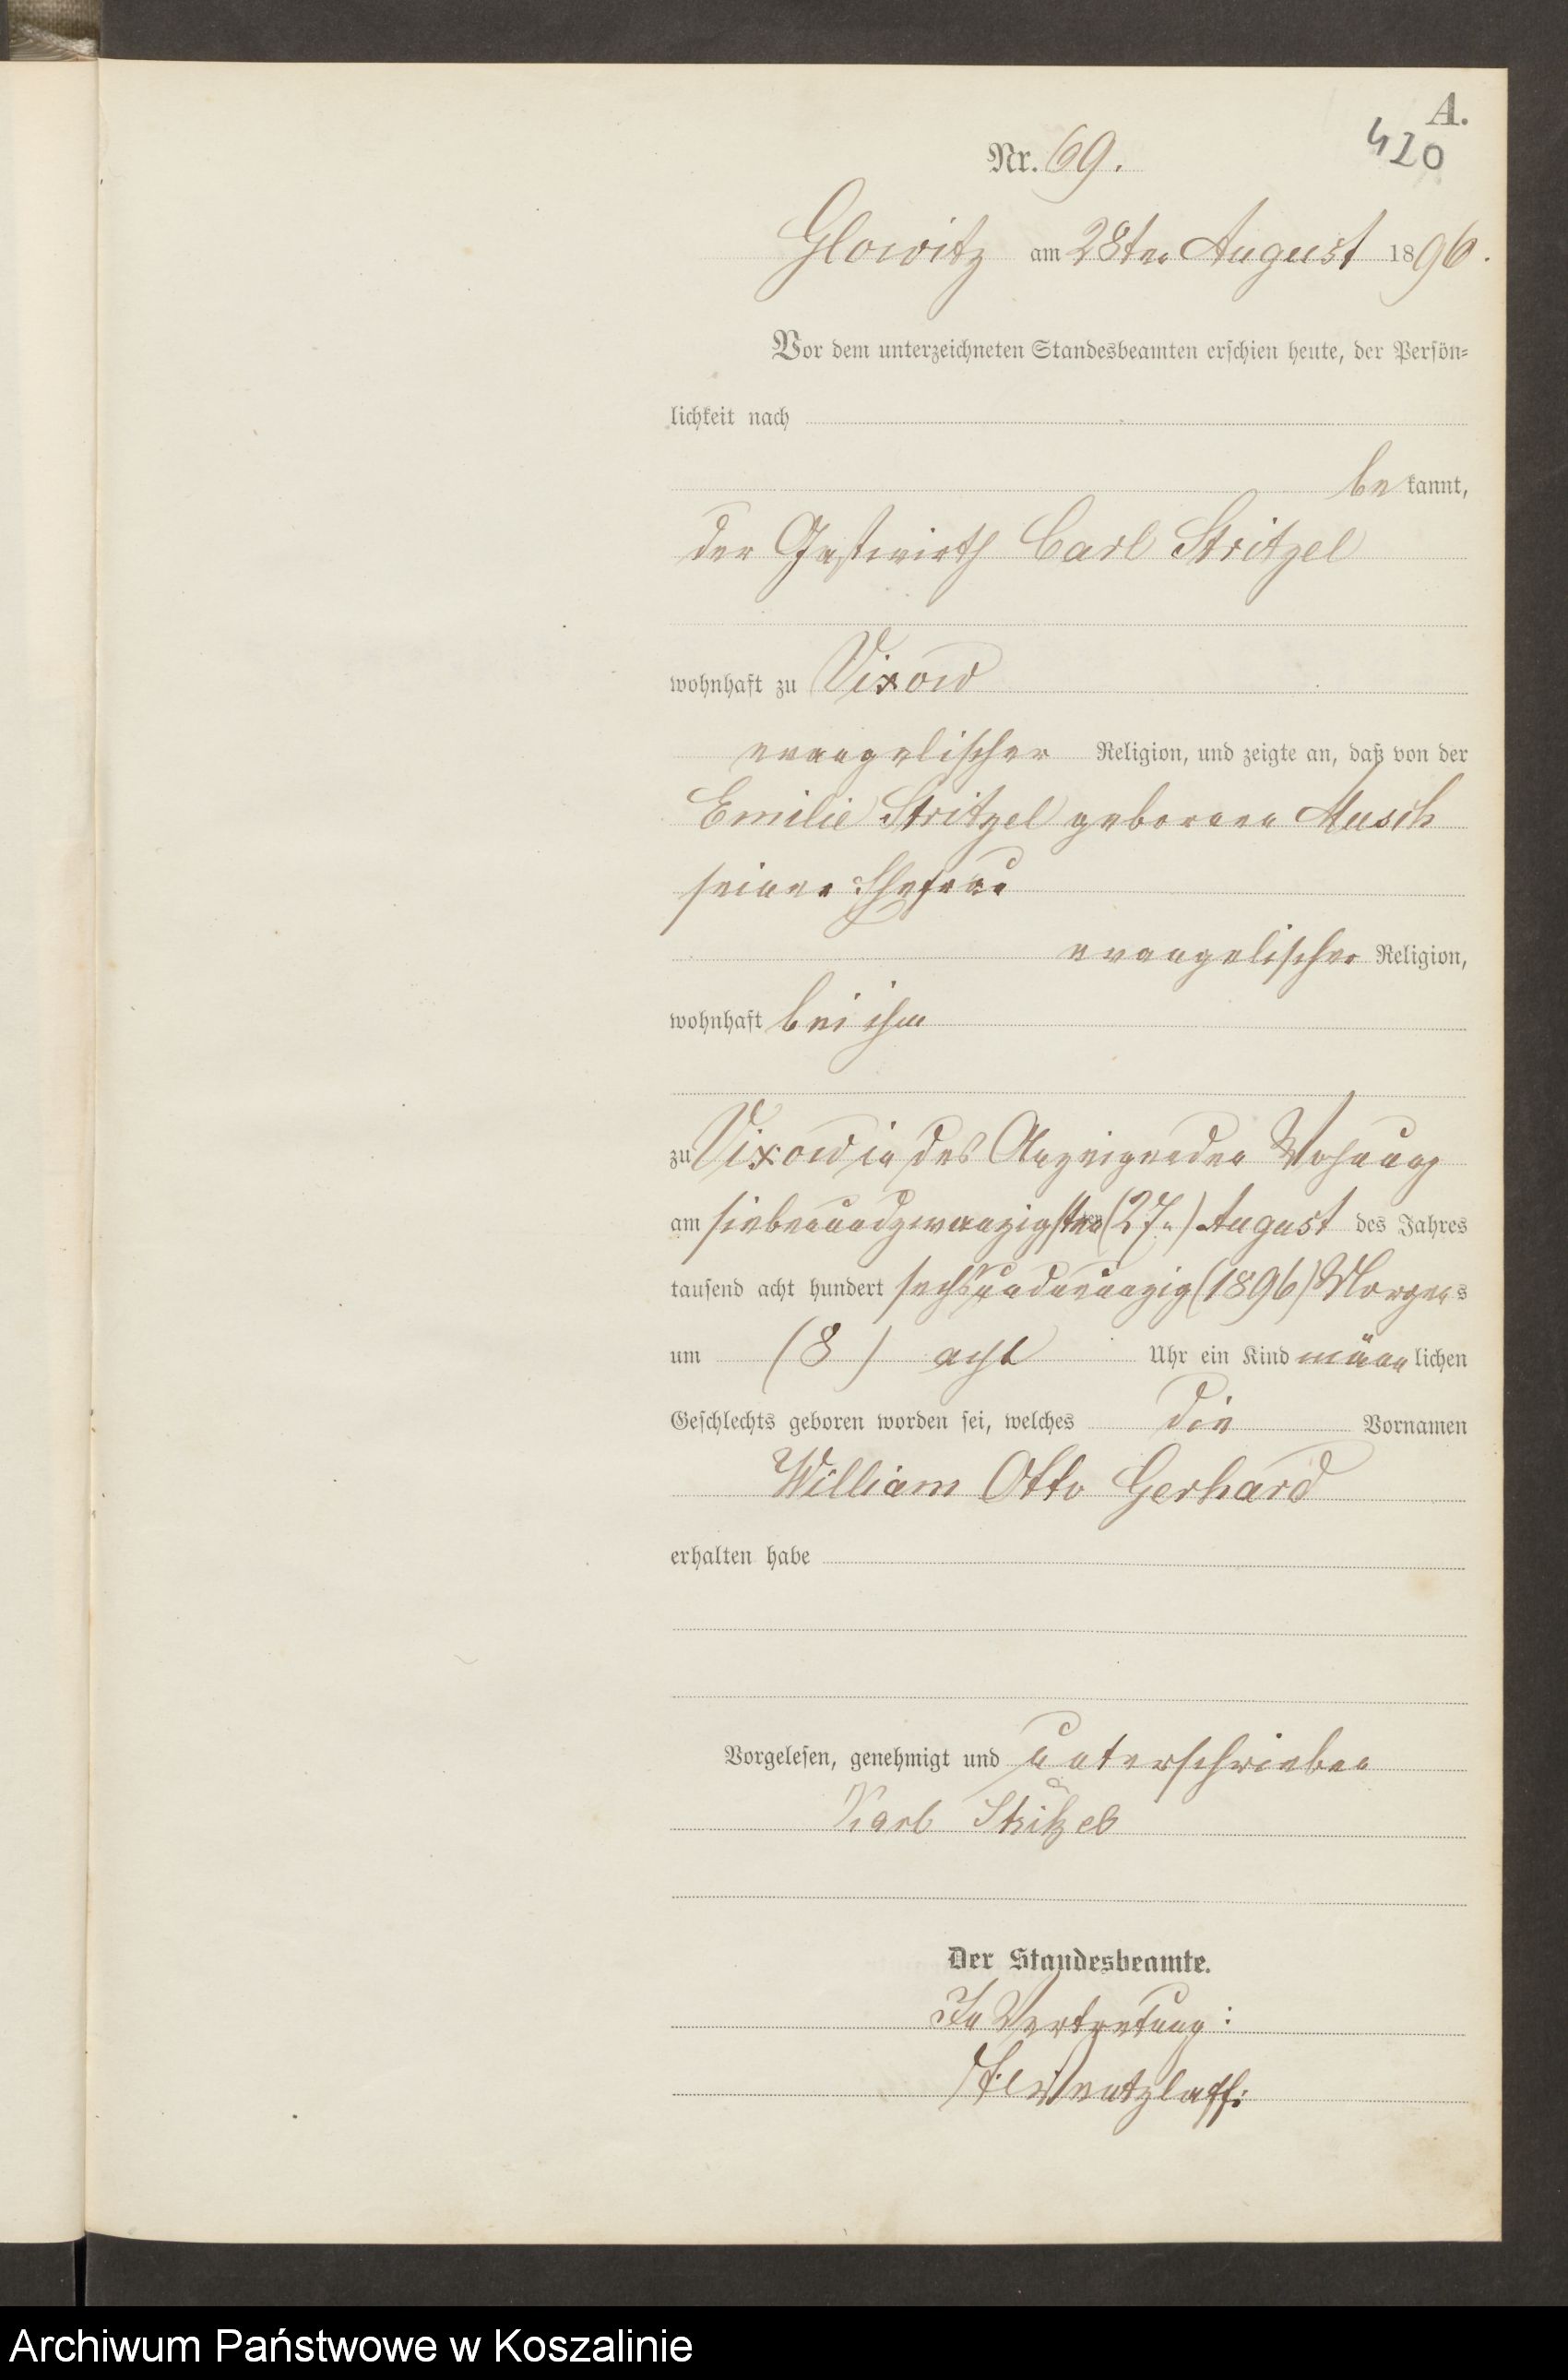 A.
420
Nr. 69.
Glowitz am 28ten August 1896.
Vor dem unterzeichneten Standesbeamten erschien heute, der Persön-
lichkeit nach
bekannt,
der Gastwirth Carl Stritzel
wohnhaft zu Vixow
evangelischer Religion, und zeigte an, daß von der
Emilie Stritzel geborenen Musch
seiner Ehefrau
evangelischer Religion,
wohnhaft bei ihm
zu Vixow in des Anzeigenden Wohnung
am siebenundzwanzigsten (27n) August des Jahres
tausend acht hundert sechsundneunzig (1896) Morgens
um (8) acht Uhr ein Kind männlichen
Geschlechts geboren worden sei, welches die Vornamen
William Otto Gerhard
erhalten habe
Vorgelesen, genehmigt und unterschrieben
Karl Stritzel
Der Standesbeamte.
In Vertretung:
Wentzlaff.
Archiwum Państwowe w Koszalinie